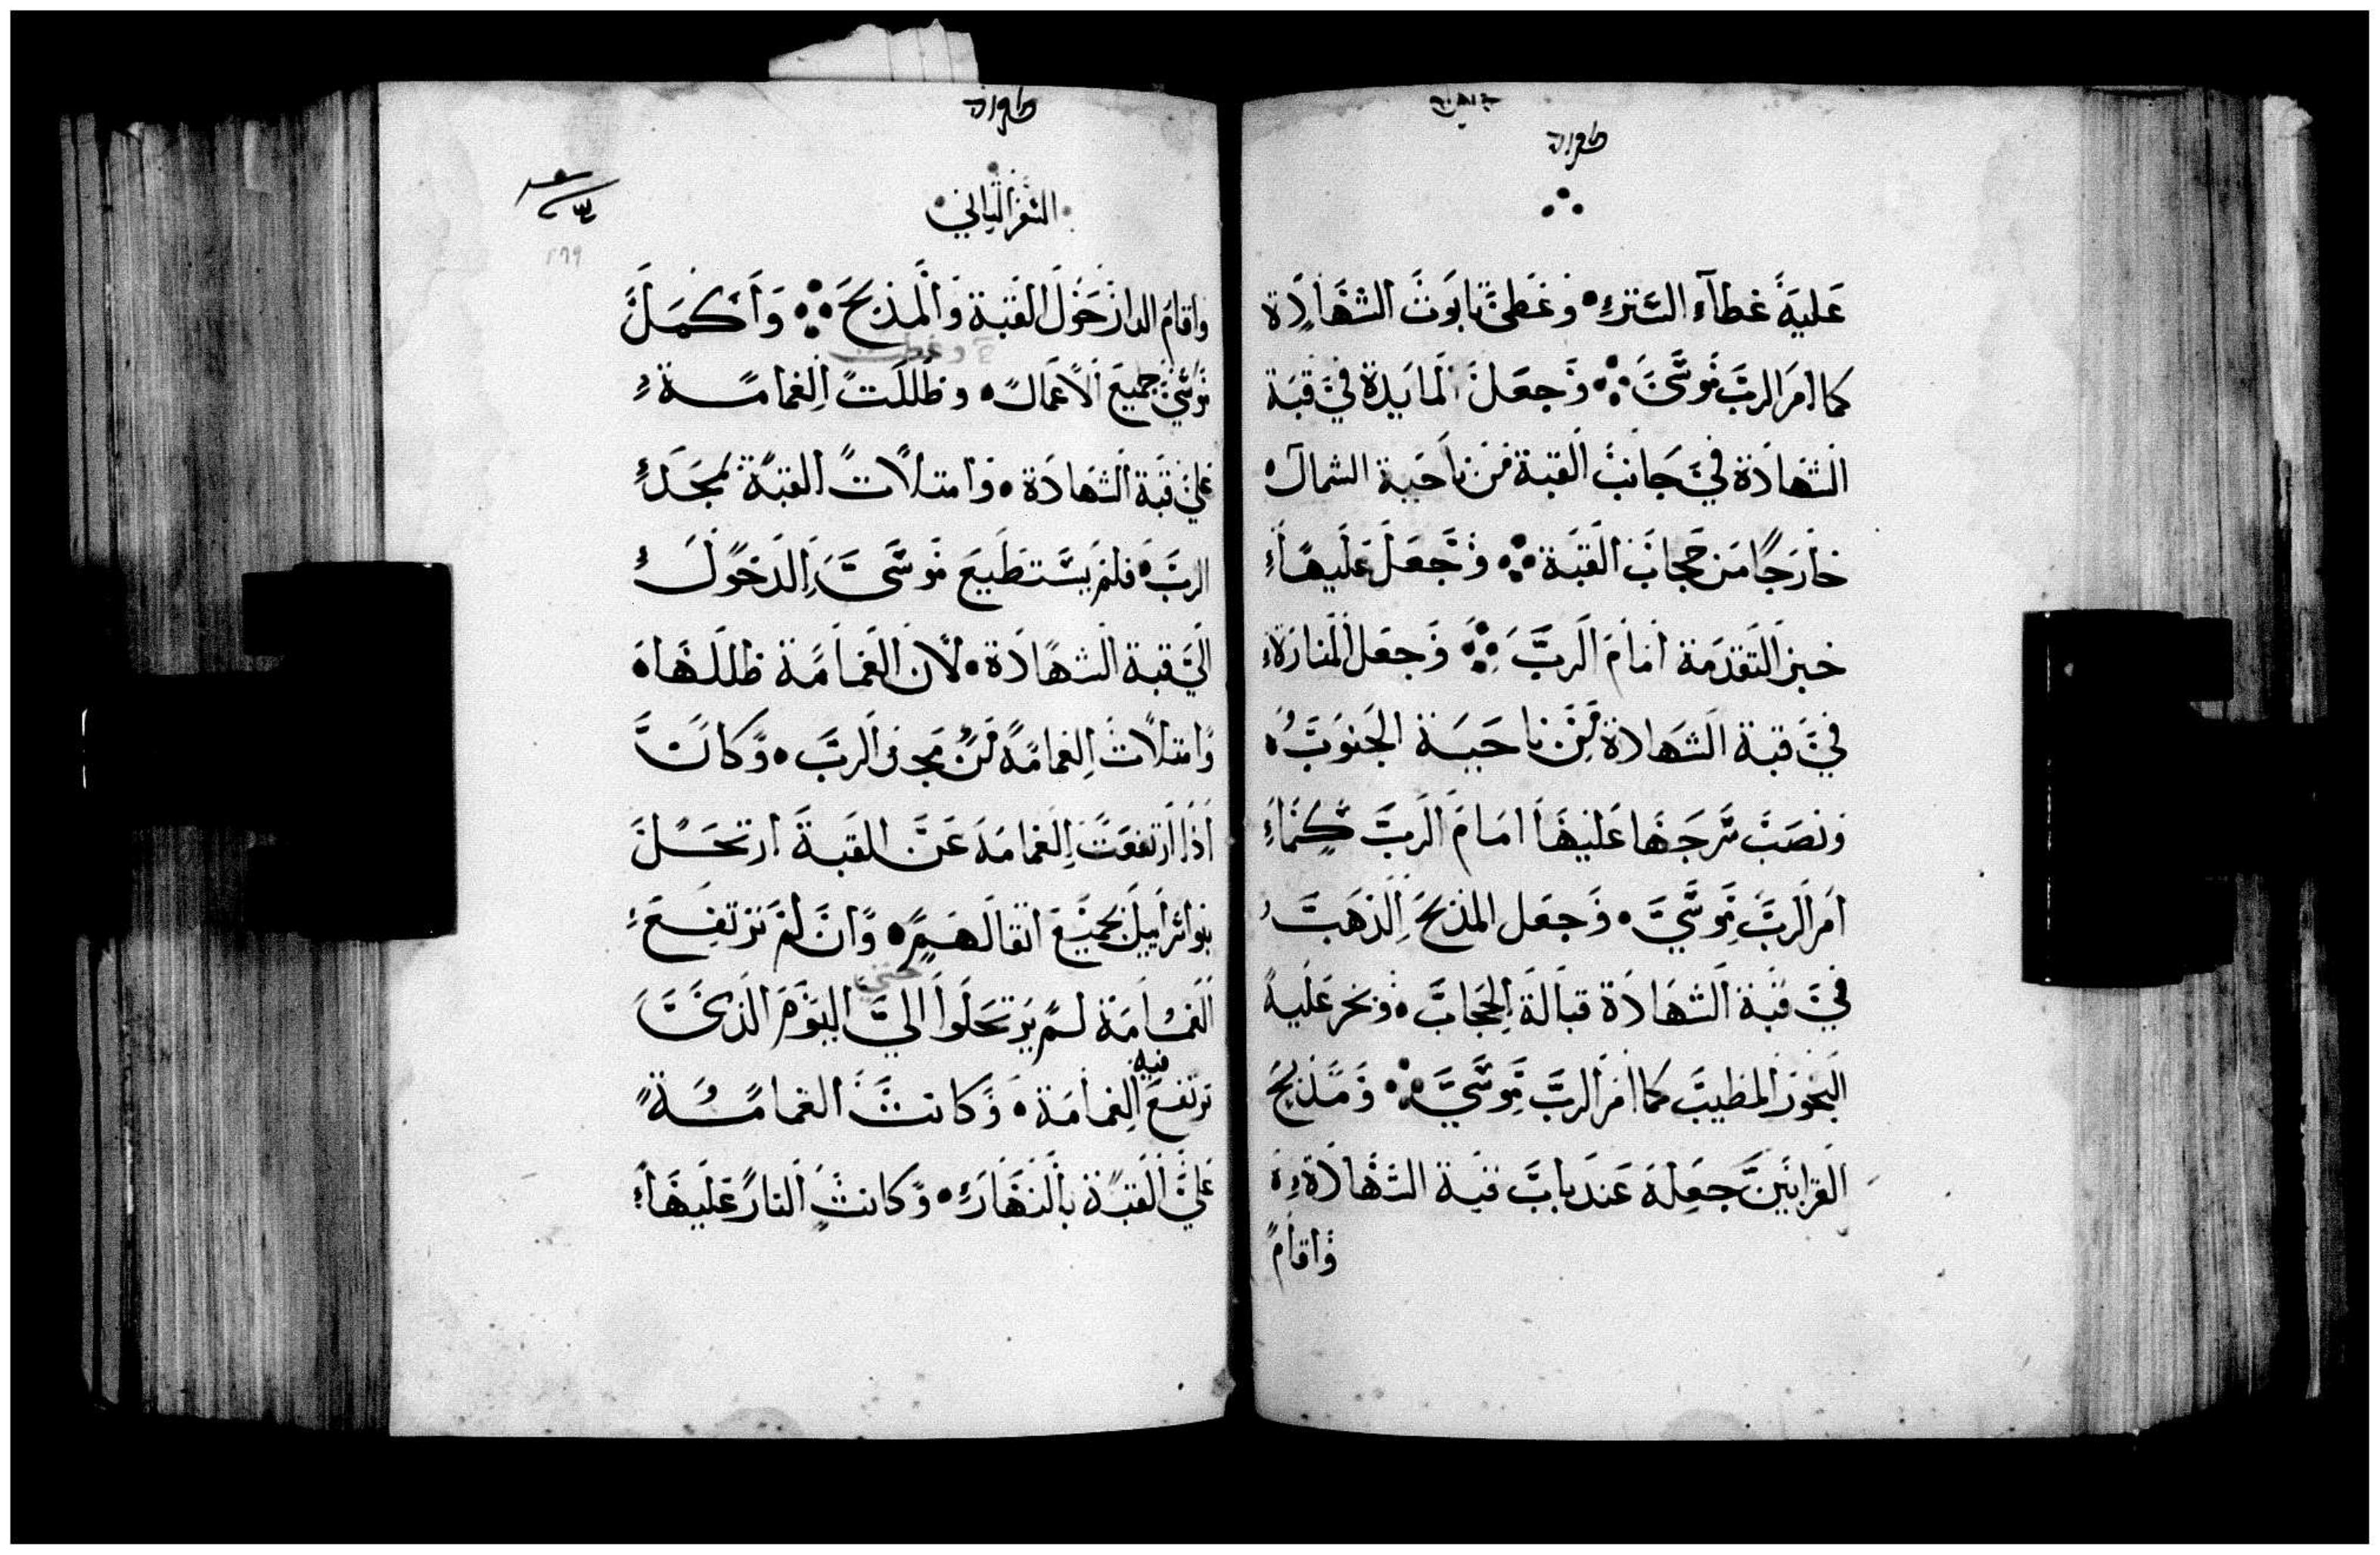 عليه غطاء الستر • وغطى تابوت الشهادة
كما امر الرب موسى ⁘ وجعل المايدة في قبة
الشهادة في جانب القبة من ناحية الشمال •
خارجا من حجاب القبة ⁘ وجعل عليها
خبز التقدمة امام الرب ⁘ وجعل المنارة
في قبة الشهادة من ناحية الجنوب •
ونصب سرجها عليها امام الرب كما
امر الرب موسى • وجعل المذبح الذهب
في قبة الشهادة قبالة الحجاب • وبخر عليه
البخور المطيب كما امر الرب موسى ⁘ ومذبح
القرابين جعله عند باب قبة الشهادة •
واقام
السفر الثاني
واقام الدار حول القبة والمذبح ⁘ واكمل
وغطت
موسى جميع الاعمال • وظللت الغمامة
على قبة الشهادة • وامتلات القبة مجد
الرب • فلم يستطيع موسى الدخول
الى قبة الشهادة • لان الغمامة ظللها •
وامتلات الغمامة من مجد الرب • وكان
اذا ارتفعت الغمامة عن القبة ارتحل
بنو اسراييل بجميع اثقالهم • وان لم ترتفع
الغمامة لم يرتحلوا الى اليوم الذي
فيه
ترتفع الغمامة • وكانت الغمامة
على القبة بالنهار • وكانت النار عليها